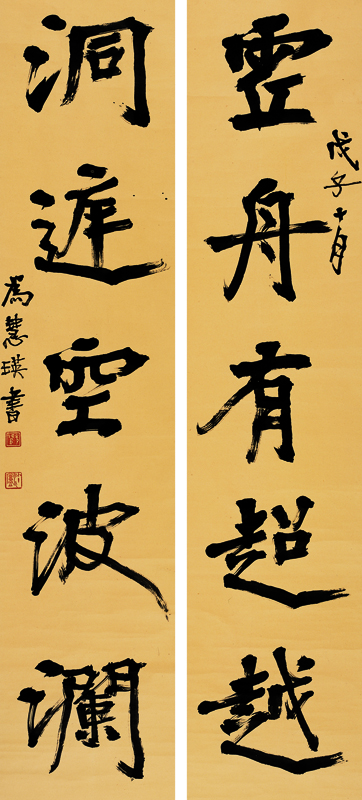 虛舟有超越
戊子十月
洞庭空波瀾
為慧瑛書